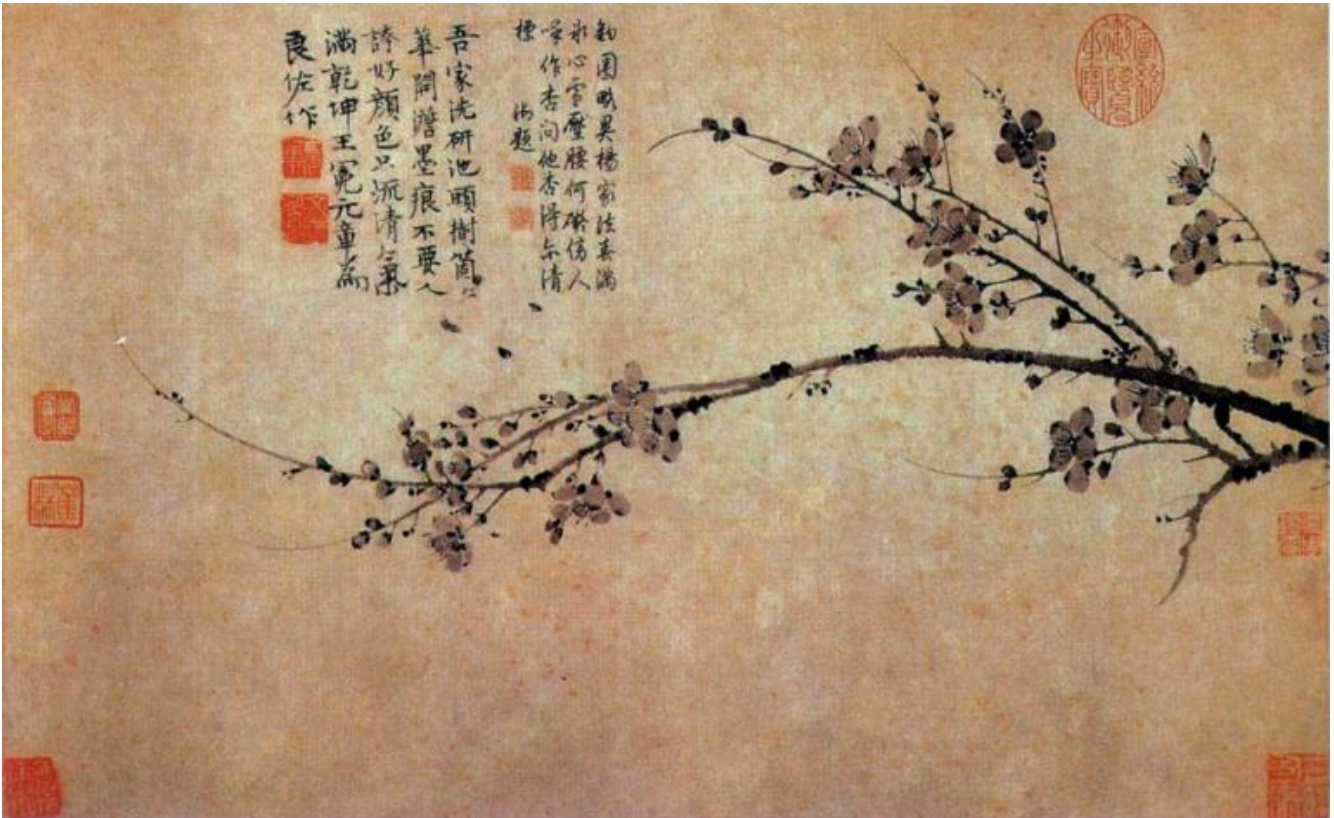 鈎圈略異楊家法春滿
冰心雪壓腰何礙傍人
喚作杏問他杏得尔清
標 御題
吾家洗研池頭樹箇〻
華開澹墨痕不要人
誇好顏色只流清氣
滿乾坤王冕元章為
良佐作